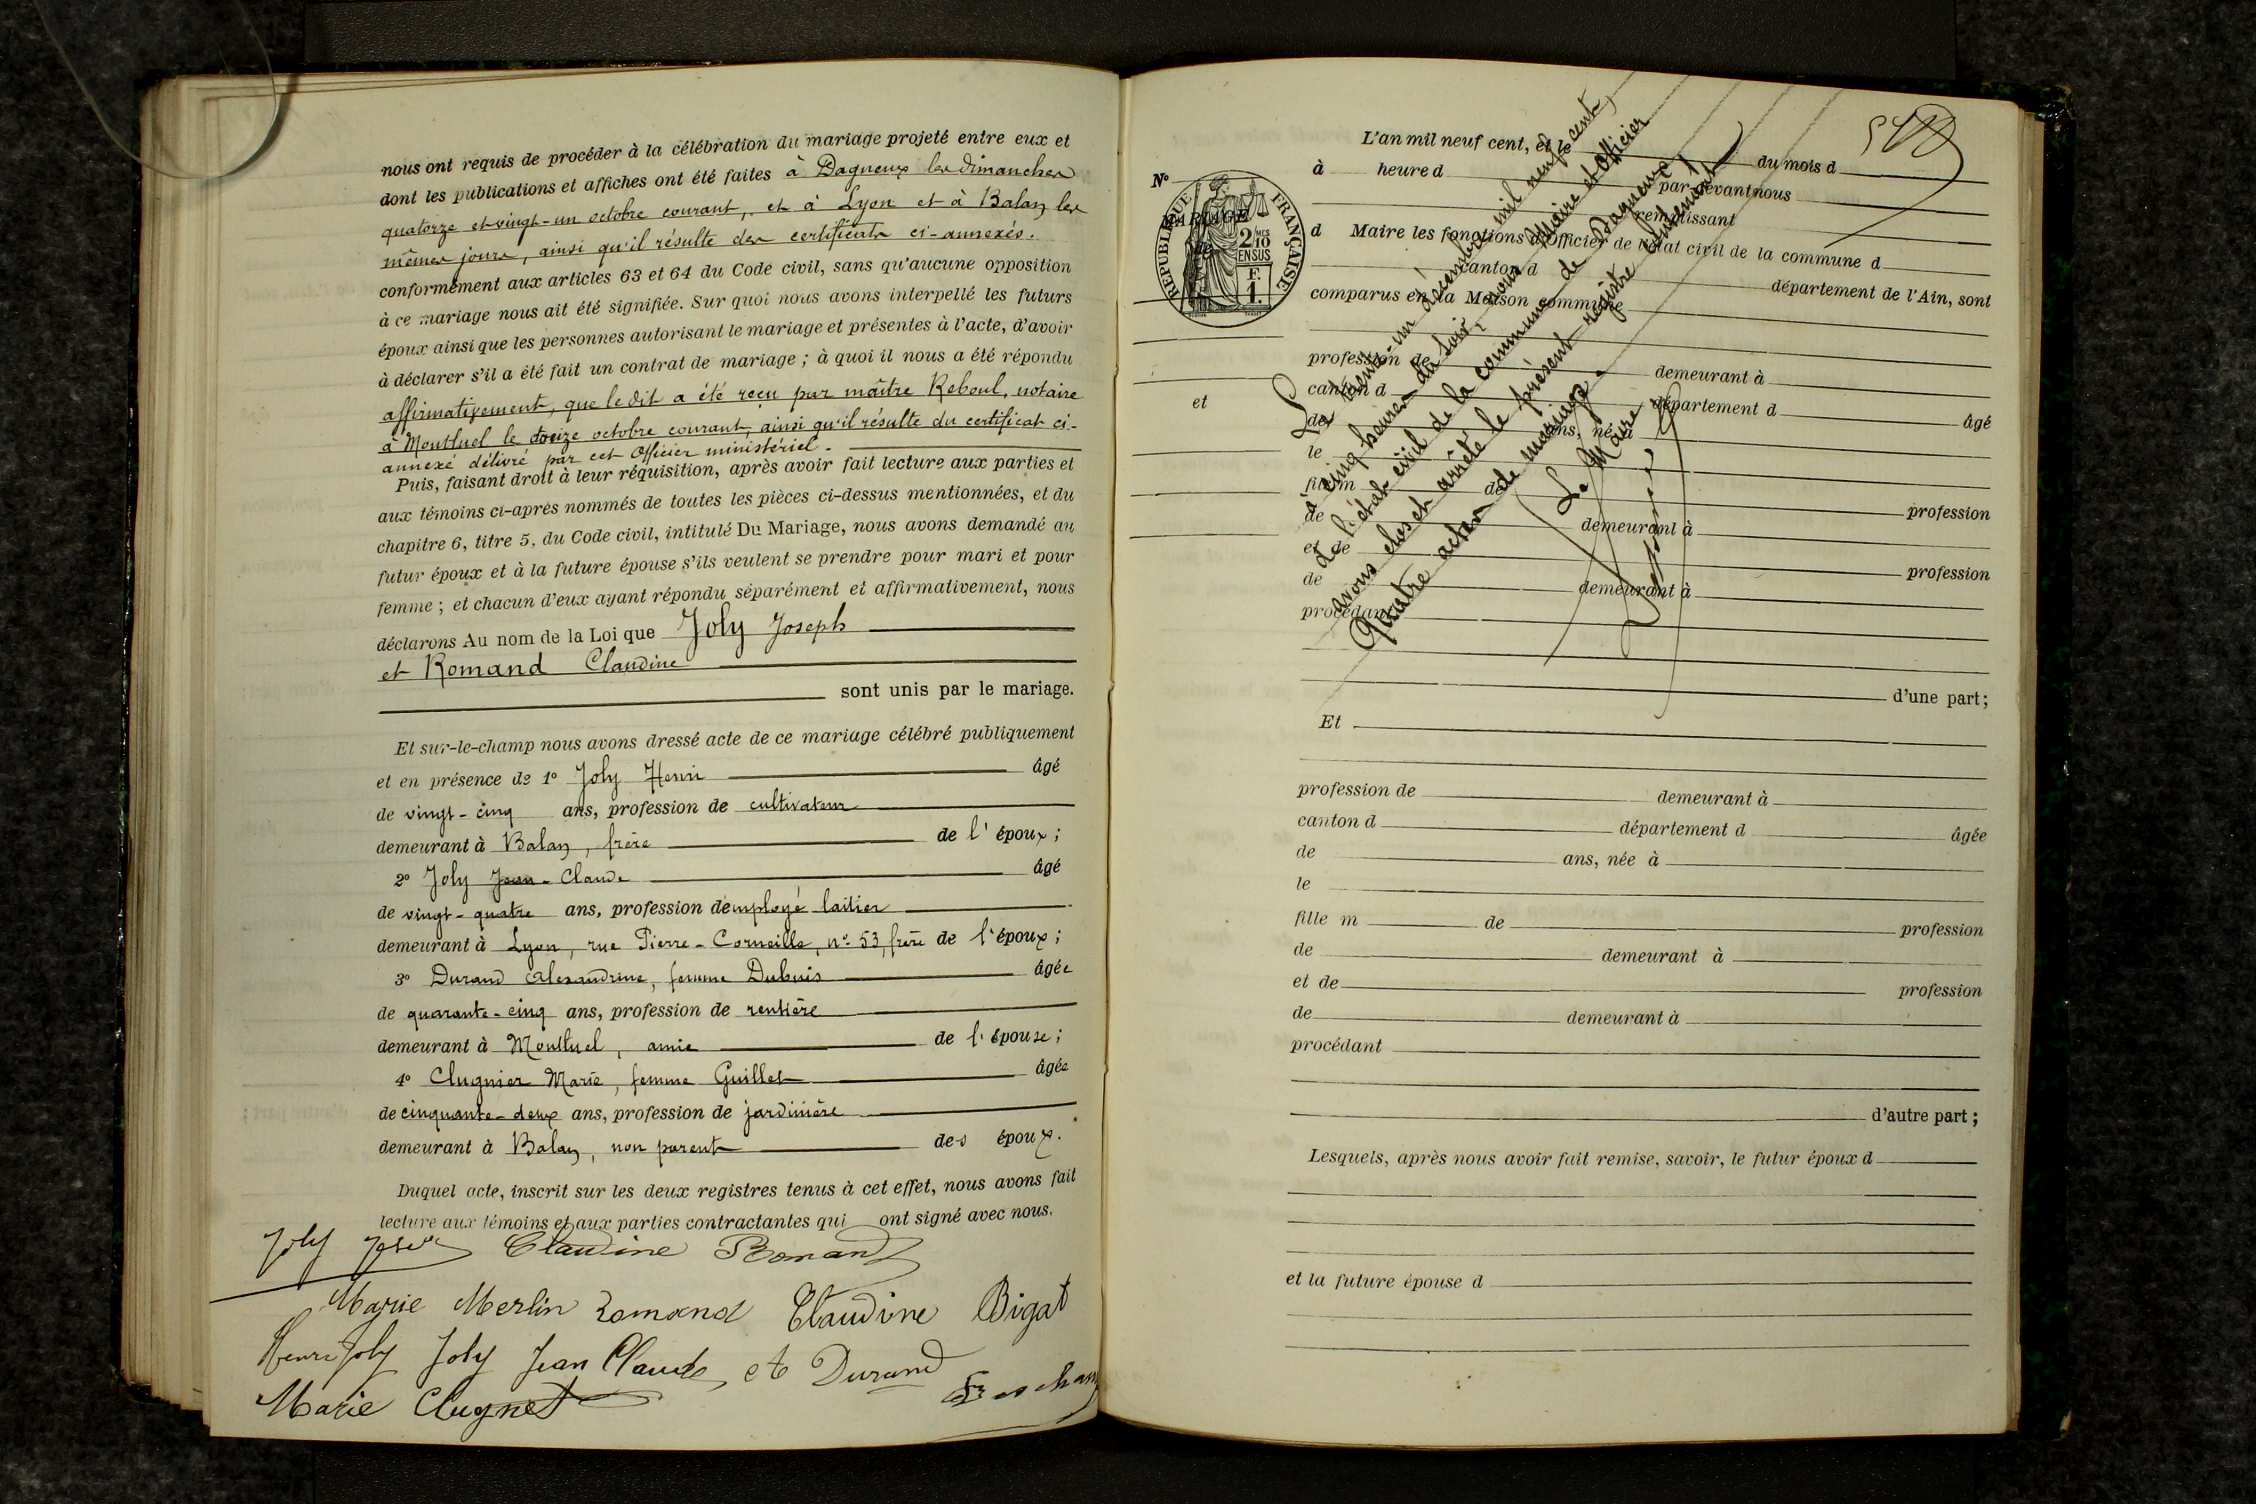 nous ont requis de procéder à la célébration du mariage projeté entre eux et
dont les publications et affiches ont été faites à Dagneux les dimanches
quatorze et vingt-un octobre courant, et à Lyon et à Balan les
mêmes jours, ainsi qu'il résulte des certificats ci-annexés.
conformément aux articles 63 et 64 du Code civil, sans qu'aucune opposition
à ce mariage nous ait été signifiée. Sur quoi nous avons interpellé les futurs
époux ainsi que les personnes autorisant le mariage et présentes à l'acte, d'avoir
à déclarer s'il a été fait un contrat de mariage ; à quoi il nous a été répondu
affirmativement, que le dit a été reçu par maître Reboul, notaire
à Montluel le octobre courant, ainsi qu'il résulte du certificat ci-
annexé délivré par cet Officier ministériel.
Puis, faisant droit à leur réquisition, après avoir fait lecture aux parties et
aux témoins ci-après nommés de toutes les pièces ci-dessus mentionnées, et du
chapitre 6, titre 5, du Code civil, intitulé Du Mariage, nous avons demandé au
futur époux et à la future épouse s'ils veulent se prendre pour mari et pour
femme ; et chacun d'eux ayant répondu séparément et affirmativement, nous
déclarons Au nom de la Loi que Joly Joseph
et Romand Claudine
sont unis par le mariage.
Et sur-le-champ nous avons dressé acte de ce mariage célébré publiquement
et en présence de 1º Joly Henri âgé
de vingt-cinq ans, profession de cultivateur
demeurant à Balan, frère de l'époux ;
2º Joly Jean-Claude âgé
de vingt-quatre ans, profession d'employé laitier
demeurant à Lyon, rue Pierre-Corneille, nº 53, frère de l'époux ;
3º Durand Alexandrine, femme Dubuis âgée
de quarante-cinq ans, profession de rentière
demeurant à Montluel, amie de l'épouse ;
4º Clugnier Marie, femme Guillet âgée
de cinquante-deux ans, profession de jardinière
demeurant à Balan, non parent des époux.
Duquel acte, inscrit sur les deux registres tenus à cet effet, nous avons fait
lecture aux témoins et aux parties contractantes qui ont signé avec nous.
Joly Claudine Romand
Marie Merlin Romand Claudine Bigat
Henri Joly Joly Jean Claude et Durand
Marie Clugnet
Nº
MARIAGE
de
et
REPUBLIQUE FRANÇAISE
2 MES
10
EN SUS
F.
1.
L'an mil neuf cent, et le du mois d
à heure d par-devant nous
remplissant
d Maire les fonctions d'Officier de l'état civil de la commune d
canton d département de l'Ain, sont
comparus en la Maison commune
profession de demeurant à
canton d département d âgé
de ans, né à
le
fils m de profession
de demeurant à
et de profession
de demeurant à
procédant
d'une part ;
Le trente-un décembre mil neuf cent,
à cinq heures du soir, nous Maire et Officier
de l'état civil de la commune de Dagneux
avons clos et arrêté le présent registre contenant
Quatre actes de mariage.
Le Maire
Et
profession de demeurant à
canton d département d âgée
de ans, née à
le
fille m de profession
de demeurant à
et de profession
de demeurant à
procédant
d'autre part ;
Lesquels, après nous avoir fait remise, savoir, le futur époux d
et la future épouse d